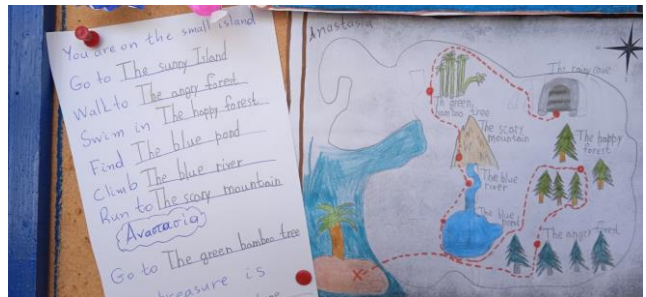 You are on the small island
Go to The sunny Island
Walk to The angry forest
Swim in The happy forest
Find The blue pond
Climb The blue river
Run to The scary mountain
Go to The green bamboo tree
treasure is
Anastasia
The green
bamboo tree
The scary
mountain
The blue
river
The blue pond
The cave
The happy
forest
The angry forest
X